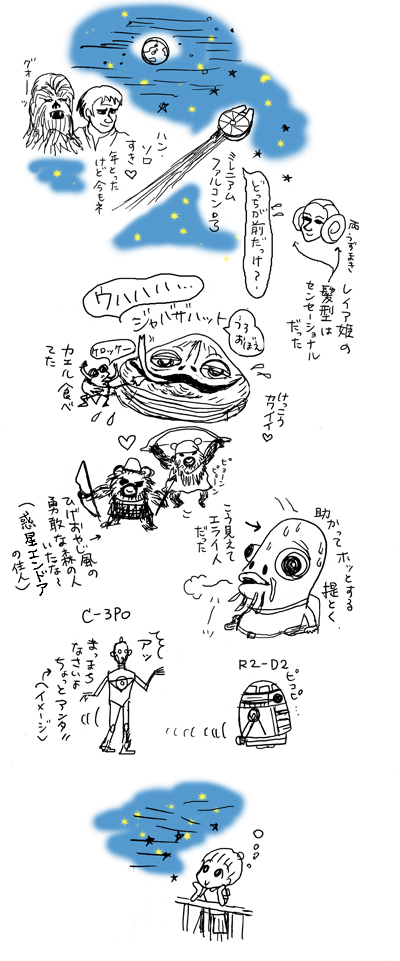 グォーッ
ハン・
ソロ
すき♡
年とった
けど今もネ
ミレニアム
ファルコン号
どっちが前だっけ？
両うずまき
レイア姫の
髪型は
センセーショナル
だった
ウハハハハ…
ジャバザハット
うろ
おぼえ
ケロッケー
カエル食べ
てた
けっこう
カワイイ♡
ピョーン
ピョーン
ひげおやじ風の
勇敢な森の人
いたな〜
（惑星エンドア
の住人）
こう見えて
エライ人
だった
助かって
ホッとする
提とく
C-3PO
アッ
まっまち
なさいよ
ちょっとアンタ!!
（イメージ）
R2-D2
ピコピ…